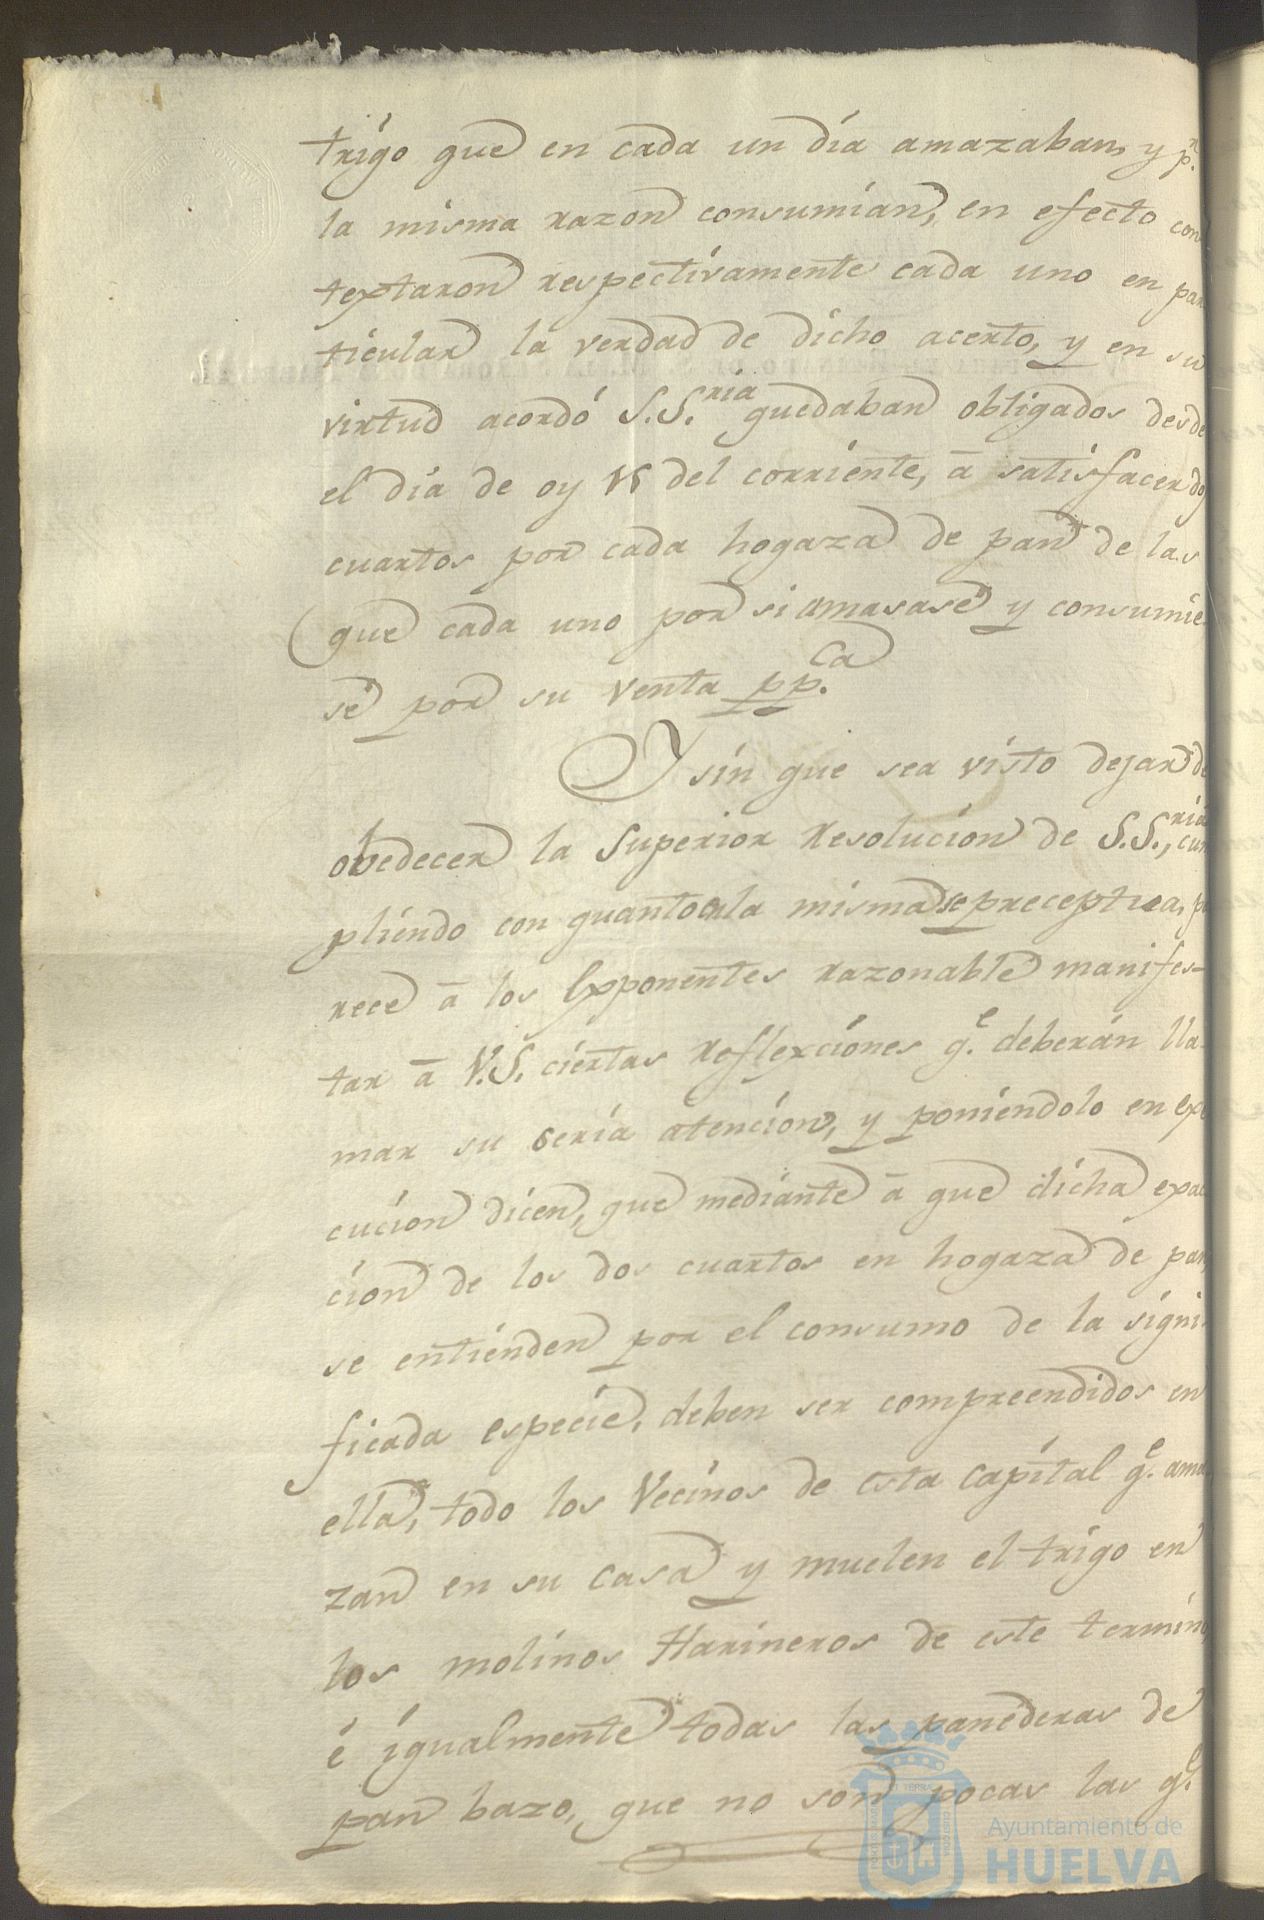 trigo que en cada un dia amazaban, y p.r
la misma razon consumian, en efecto con
textaron respectivamente cada uno en par
ticular la verdad de dicho acerto, y en su
virtud acordó S.S.ria quedaban obligados desde
el dia de oy 15 del corriente, ā satisfacer dos
cuartos por cada hogaza de pan de las
que cada uno por si amasase y consumie
se por su venta pp.ca
Y sin que sea visto dejar de
obedecer la Superior Resolucion de S.S.ria, cum
pliendo con quanto en la misma se preceptua, pa
rece ā los Exponentes razonable manifes-
tar ā V.S. ciertas reflexciones q.e deberán lla
mar su seria atencion, y poniéndolo en exe
cucion dicen, que mediante ā que dicha exac
cion de los dos cuartos en hogaza de pan,
se entienden por el consumo de la signi
ficada especie, deben ser compreendidos en
ella, todo los Vecinos de esta Capital q.e ama
zan en su casa y muelen el trigo en
los molinos Harineros de este termino
é igualmente todas las panederas de
pan bazo, que no son pocas las q.e
Ayuntamiento de
HUELVA